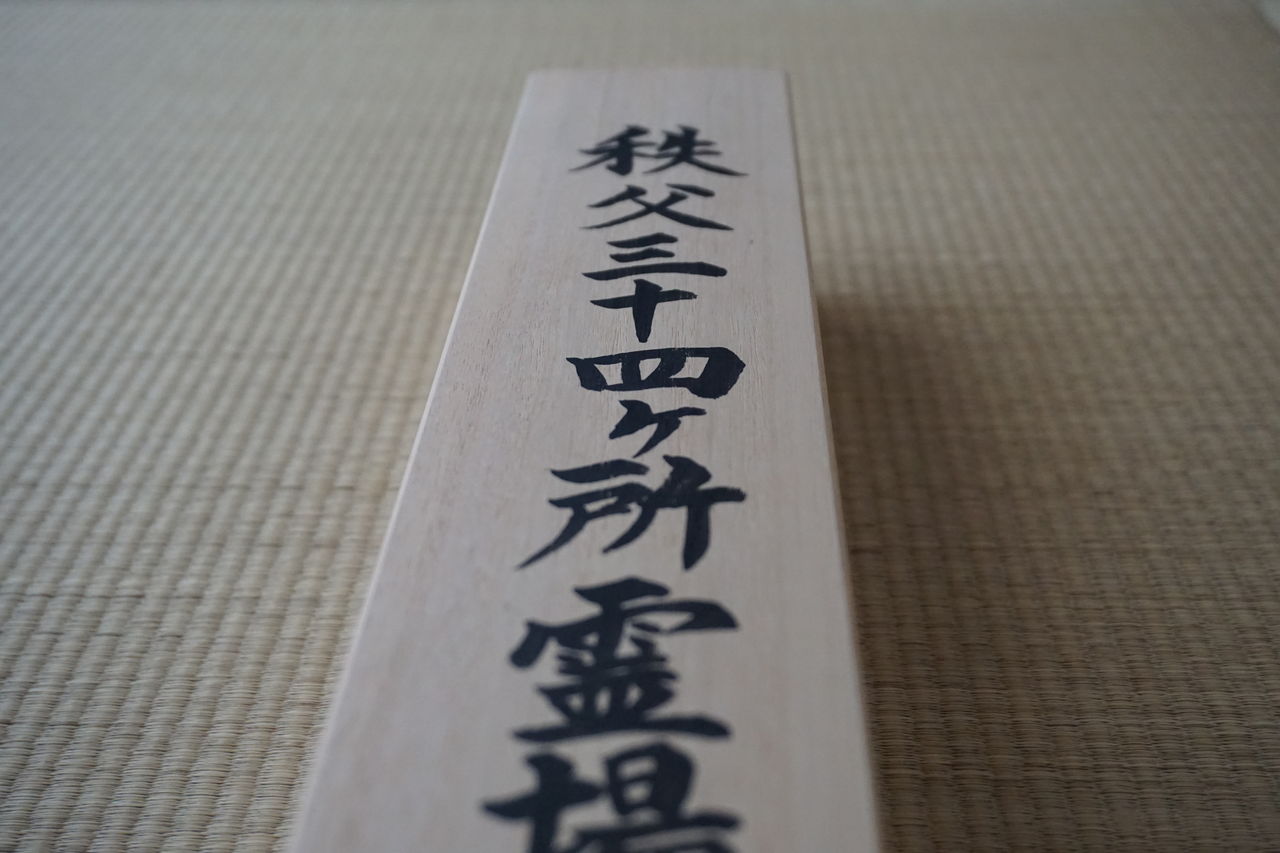 秩父三十四ヶ所霊場